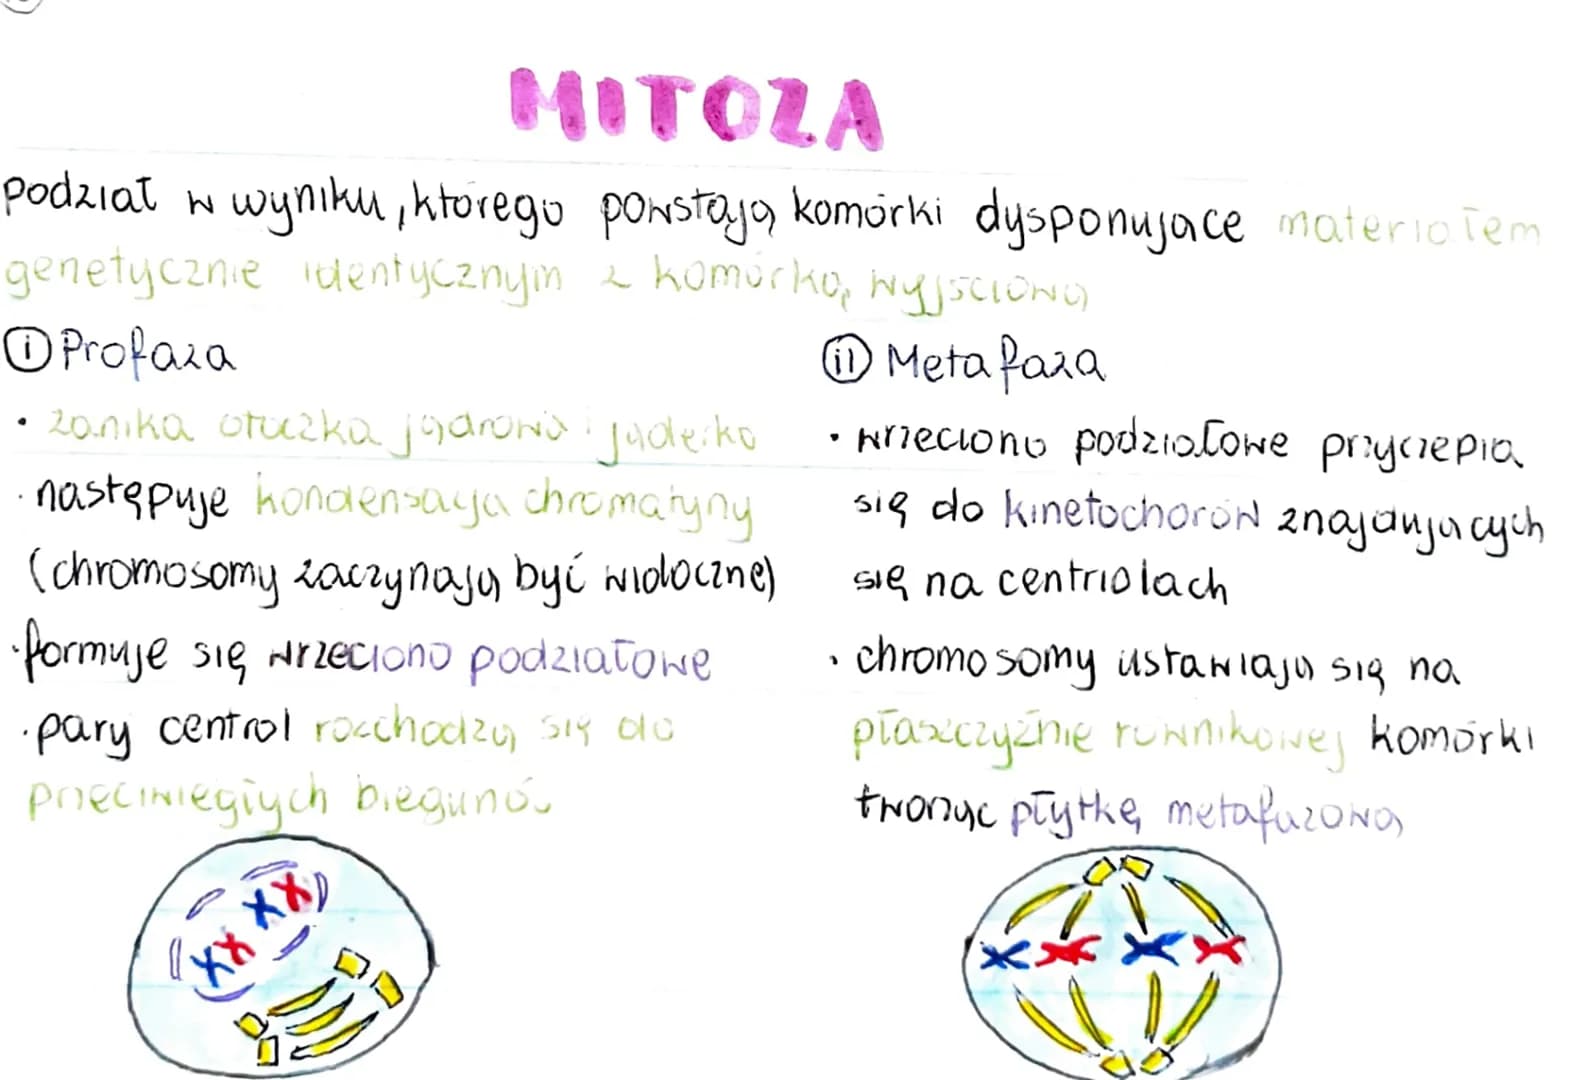 MITOZA
podział w wyniku, którego powstają komórki dysponujące materiałem
genetycznie identycznym z komórką wyjściową
i Profaza
• zanika otoczka jądrowa i jąderko
• następuje kondensacja chromatyny
(chromosomy zaczynają być widoczne)
• formuje się wrzeciono podziałowe
• pary centrol rozchodzą się do
przeciwległych biegunów
ii Metafaza
• wrzeciono podziałowe przyczepia
się do kinetochorów znajdujących
się na centriolach
• chromosomy ustawiają się na
płaszczyźnie równikowej komórki
tworząc płytkę metafazową